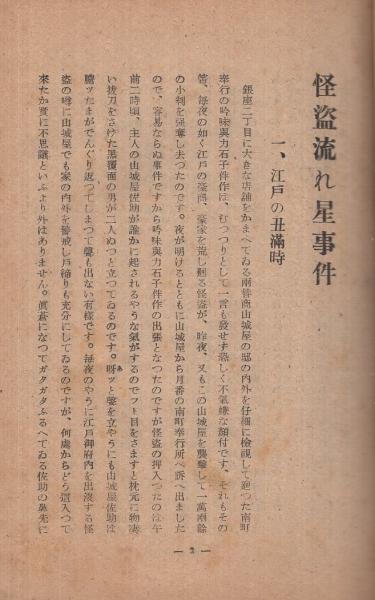 怪盗流れ星事件
一、江戸の丑滿時
銀座二丁目に大きな店舗をかまへてゐる兩替商山城屋の邸の內外を仔細に檢視して廻つた南町
奉行の吟味與力石子伴作は、むつつりとして一言も發せず恐しく不氣嫌な顏付です。それもその
筈、每夜の如く江戸の豪商、豪家を荒し廻る怪盗が、昨夜、又もこの山城屋を襲擊して一萬兩餘
の小判を强奪し去つたのです。夜が明けるとともに山城屋から月番の南町奉行所へ訴へ出ました
ので、容易ならぬ事件ですから吟味與力石子伴作の出張となつたのですが怪盗の押入つたのは午
前二時頃、主人の山城屋佐助が誰かに起されるやうな氣がするのでフト目をさますと枕元に物凄
い拔刀をさげた黑覆面の男が二人ぬつと立つてゐるのです。呀ッと聲を立やうにも山城屋佐助は
膽ッたまがでんぐり返つてしまつて聲も出ない有樣です。每夜のやうに江戸御府內を出沒する怪
盗の噂に山城屋でも家の內外を警戒し戸締りも充分にしてゐるのですが、何處からどう這入つて
來たか實に不思議といふより外はありません。眞蒼になつてガタガタふるへてゐる佐助の鼻先に
— 2 —